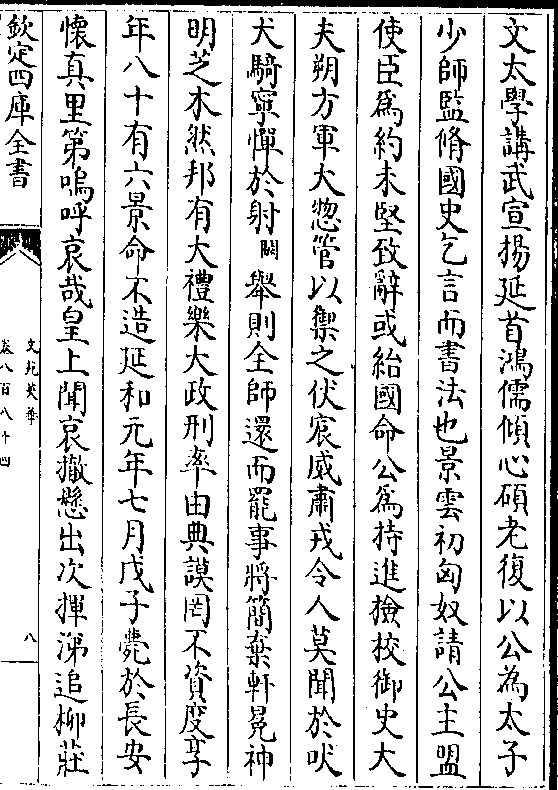 文太學講武宣揚延首鴻儒傾心碩老復以公為太子
少師監脩國史乞言而書法也景雲初匈奴請公主盟
使臣為約未堅致辭或紿國命公為持進檢校御史大
夫朔方軍大惣管以禦之伏宸威肅戎令人莫聞於吠
犬騎寧憚於射闕舉則全師還而罷事將簡棄軒冕神
明芝木然邦有大禮樂大政刑率由典謨罔不資度享
年八十有六景命不造延和元年七月戊子薨於長安
懷真里第嗚呼哀哉皇上聞哀撤懸出次揮涕追柳莊
欽定四庫全書
文苑英華
卷八百八十四
八